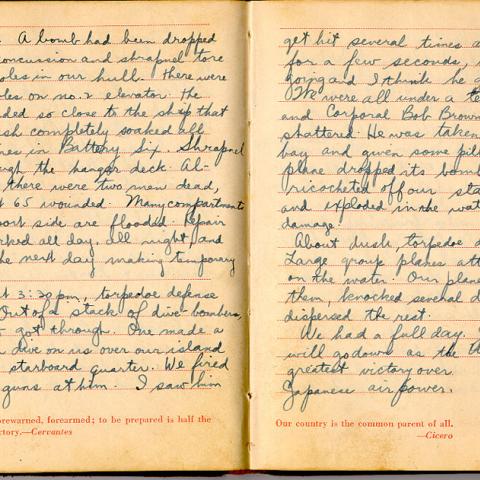 . A bomb had been dropped
concussion and shrapnel tore
holes in our hull. There were
on no. 2 elevator. The
so close to the ship that
completely soaked all
in Battery Six. Shrapnel
the hangar deck. Al-
there were two men dead,
65 wounded. Many compartments
port side are flooded. Repair
all day, all night and
the next day making temporary
3:20 pm, torpedoe defense
Out of a stack of dive bombers,
got through. One made a
dive on us over our island
starboard quarter. We fired
guns at him. I saw him
forewarned, forearmed; to be prepared is half the
victory.—Cervantes
get hit several times a
for a few seconds,
going and I think he
We were all under a
and Corporal Bob Brown
shattered. He was taken
bay and given some pill
plane dropped its bomb
ricocheted off our sta
and exploded in the wat
damage.
About dusk, torpedoe d
Large group planes att
on the water. Our plane
them, knocked several d
dispersed the rest.
We had a full day.
will go down as the
greatest victory over
Japanese air power.
Our country is the common parent of all.
—Cicero